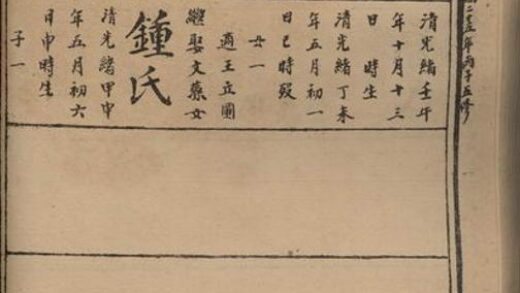 二五年丙子五修
清光緒壬午
年十月十三
日 時生
清光緒丁未
年五月初一
日巳時歿
女一
適王立圃
繼娶文藻女
鍾氏
清光緒甲申
年五月初六
日申時生
子一